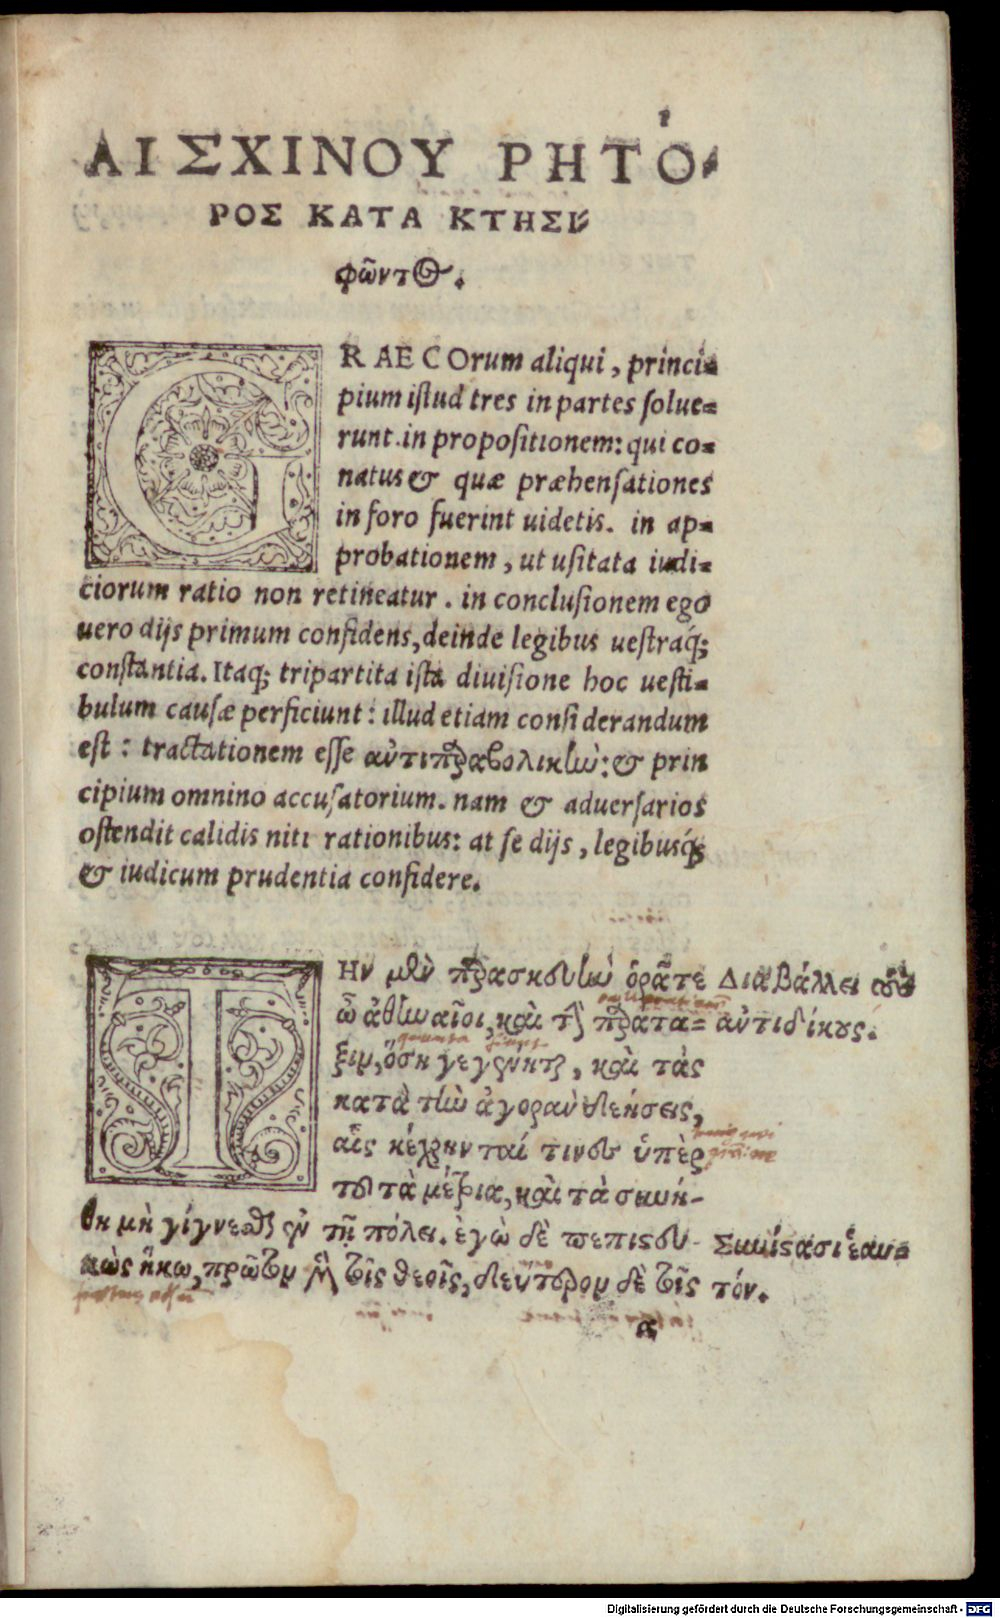 ΑΙΣΧΙΝΟΥ ΡΗΤΟ-
ΡΟΣ ΚΑΤΑ ΚΤΗΣΙ-
φῶντος.
GRAECOrum aliqui, princi=
pium istud tres in partes solue=
runt. in propositionem: qui co=
natus & quæ præhensationes
in foro fuerint uidetis. in ap=
probationem, ut usitata iudi=
ciorum ratio non retineatur. in conclusionem ego
uero dijs primum confidens, deinde legibus uestraq́;
constantia. Itaq; tripartita ista diuisione hoc uesti=
bulum causæ perficiunt: illud etiam considerandum
est: tractationem esse αὐτιπαραβολικὴν: & prin
cipium omnino accusatorium. nam & aduersarios
ostendit calidis niti rationibus: at se dijs, legibusq́;
& iudicum prudentia confidere.
ΤΗν μὲν παρασκευὴν ὁρᾶτε
ὦ ἀθηναῖοι, καὶ τὴν παράτα=
ξιν, ὅση γεγένηται, καὶ τὰς
κατὰ τὴν ἀγορὰν δεήσεις,
αἷς κέχρηνταί τινες ὑπὲρ
τοῦ τὰ μέτρια, καὶ τὰ συνή-
θη μὴ γίγνεσθαι ἐν τῇ πόλει. ἐγὼ δὲ πεπιστευ-
κὼς ἥκω, πρῶτον μὲν τοῖς θεοῖς, δεύτερον δὲ τοῖς
α
Διαβάλλει τοὺς
αὐτιδίκους.
Συνίστασι ἑαυ=
τόν.
Digitalisierung gefördert durch die Deutsche Forschungsgemeinschaft - DFG